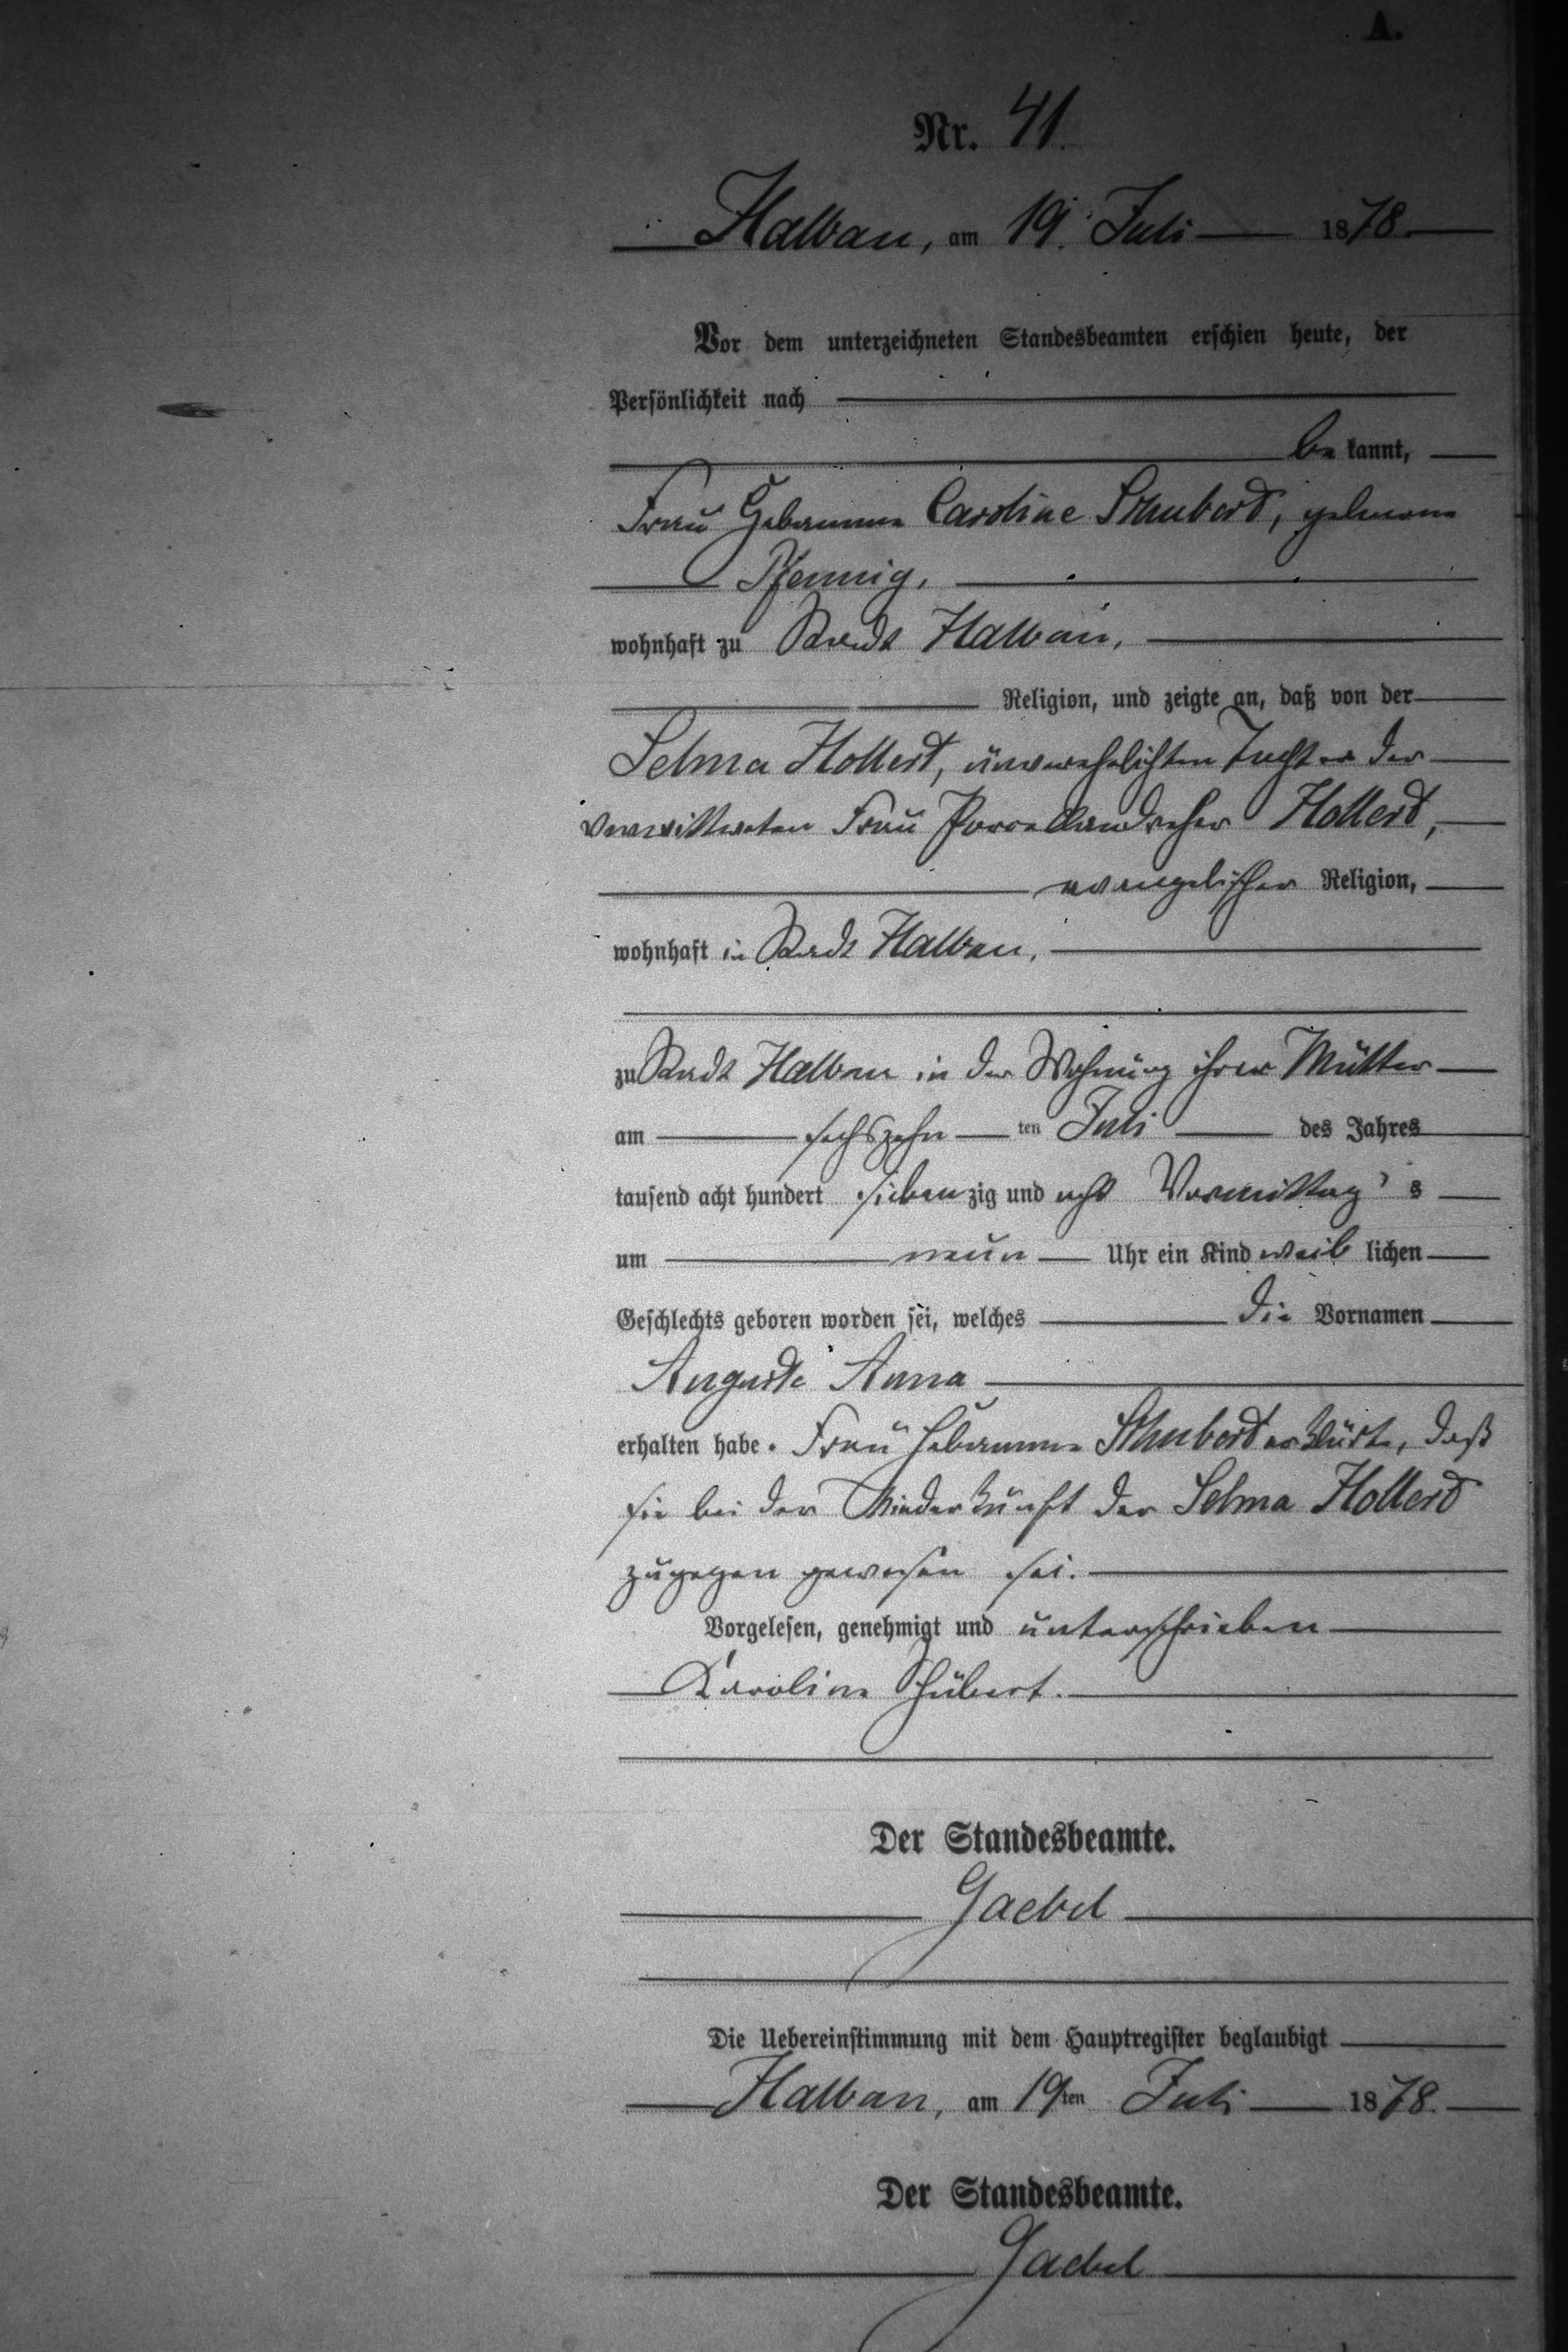 A.
Nr. 41.
Halbau, am 19. Juli 1878.
Vor dem unterzeichneten Standesbeamten erschien heute, der
Persönlichkeit nach
be kannt,
Frau Hebamme Caroline Schubert, geborene
Pfennig,
wohnhaft zu Stadt Halbau,
Religion, und zeigte an, daß von der
Selma Hollerd, unverehelichten Tochter der
verwittweten Frau Porcellandreher Hollerd,
evangelischer Religion,
wohnhaft in Stadt Halbau,
zu Stadt Halbau in der Wohnung ihrer Mutter
am sechszehn ten Juli des Jahres
tausend acht hundert siebenzig und acht Vormittag s
um neun Uhr ein Kind weib lichen
Geschlechts geboren worden sei, welches die Vornamen
Auguste Anna
erhalten habe. Frau Hebamme Schubert erklärte, daß
sie bei der Niederkunft der Selma Hollerd
zugegen gewesen sei.
Vorgelesen, genehmigt und unterschrieben
Karoline Schubert.
Der Standesbeamte.
Gaebel
Die Uebereinstimmung mit dem Hauptregister beglaubigt
Halbau, am 19ten Juli 1878.
Der Standesbeamte.
Gaebel